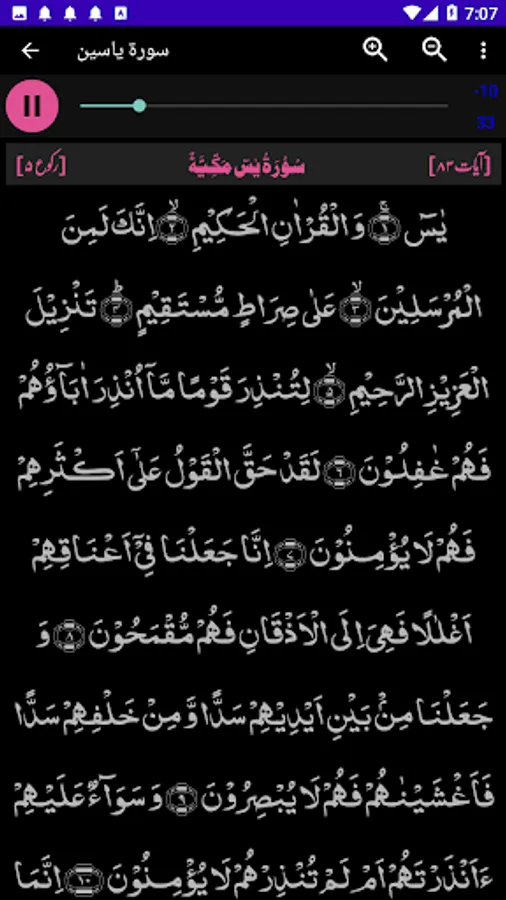 7:07
سورة ياسين
-10
33
[آیات ۸۳] سُوْرَةُ یٰسٓ مَكِّیَّةٌ [رکوع ۵]
یٰسٓ ۚ﴿۱﴾ وَ الْقُرْاٰنِ الْحَكِیْمِ ۙ﴿۲﴾ اِنَّكَ لَمِنَ
الْمُرْسَلِیْنَ ۙ﴿۳﴾ عَلٰی صِرَاطٍ مُّسْتَقِیْمٍ ؕ﴿۴﴾ تَنْزِیْلَ
الْعَزِیْزِ الرَّحِیْمِ ۙ﴿۵﴾ لِتُنْذِرَ قَوْمًا مَّاۤ اُنْذِرَ اٰبَآؤُهُمْ
فَهُمْ غٰفِلُوْنَ ﴿۶﴾ لَقَدْ حَقَّ الْقَوْلُ عَلٰۤی اَكْثَرِهِمْ
فَهُمْ لَا یُؤْمِنُوْنَ ﴿۷﴾ اِنَّا جَعَلْنَا فِیْۤ اَعْنَاقِهِمْ
اَغْلٰلًا فَهِیَ اِلَی الْاَذْقَانِ فَهُمْ مُّقْمَحُوْنَ ﴿۸﴾ وَ
جَعَلْنَا مِنْۢ بَیْنِ اَیْدِیْهِمْ سَدًّا وَّ مِنْ خَلْفِهِمْ سَدًّا
فَاَغْشَیْنٰهُمْ فَهُمْ لَا یُبْصِرُوْنَ ﴿۹﴾ وَ سَوَآءٌ عَلَیْهِمْ
ءَاَنْذَرْتَهُمْ اَمْ لَمْ تُنْذِرْهُمْ لَا یُؤْمِنُوْنَ ﴿۱۰﴾ اِنَّمَا